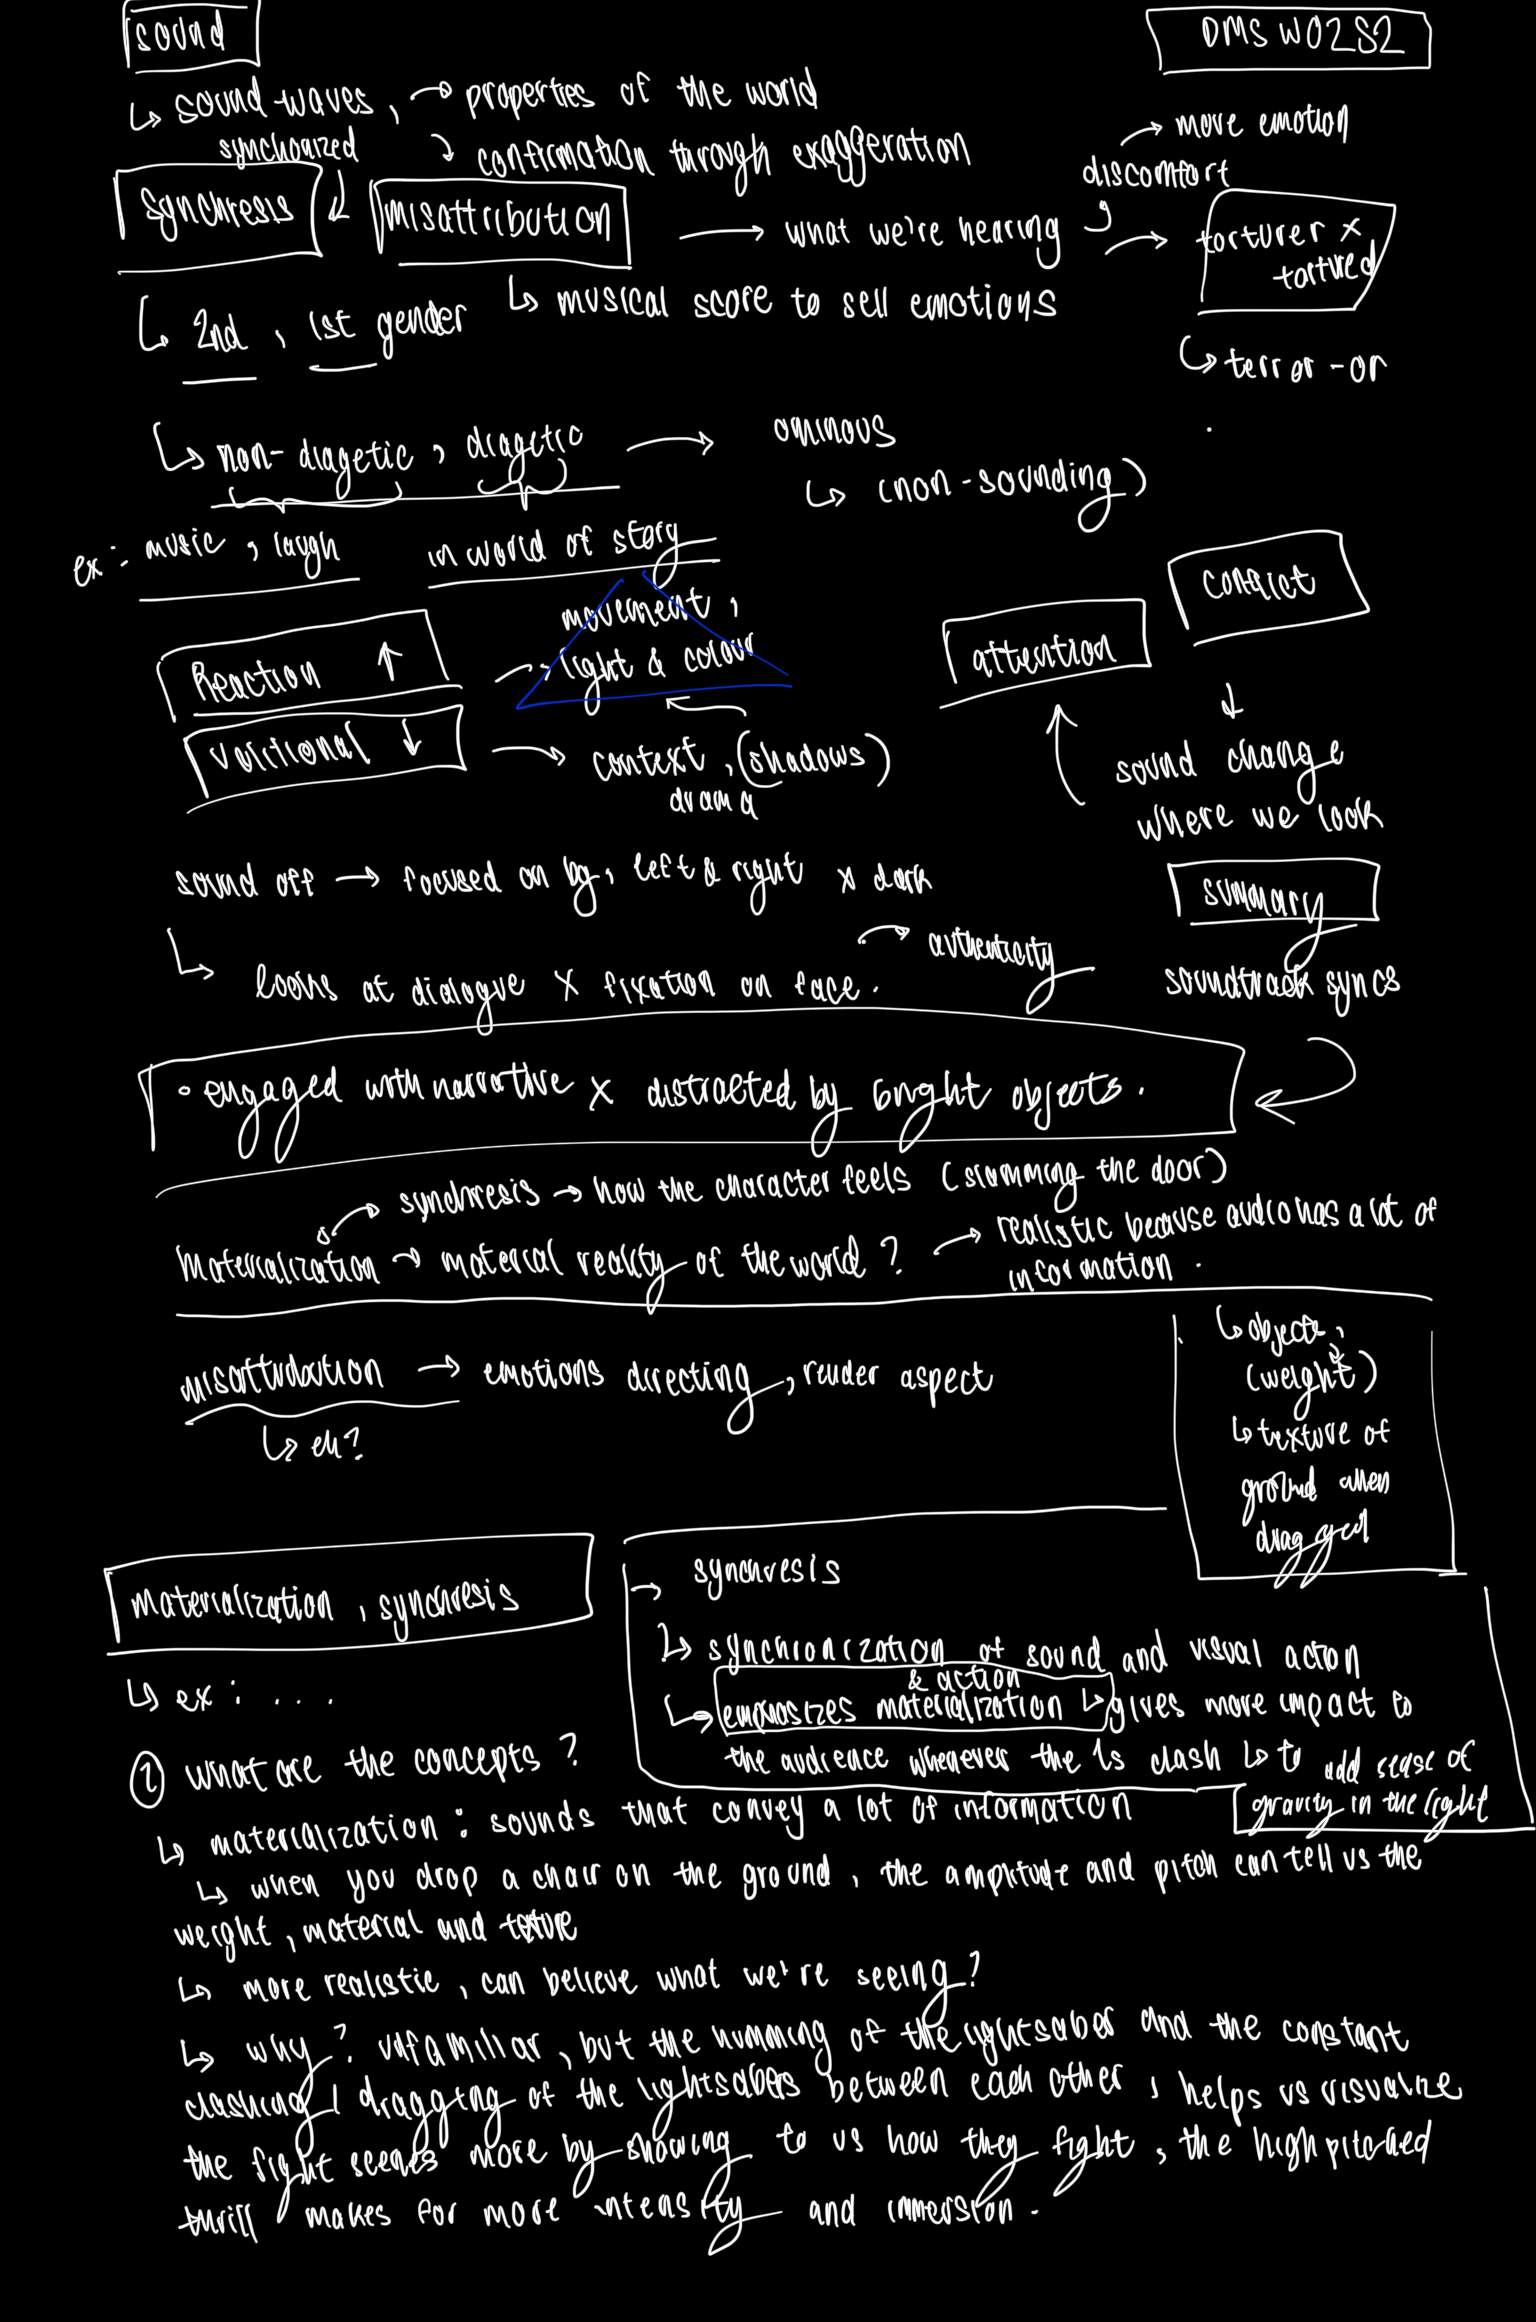 sound
DMS W02S2
↳ sound waves, → properties of the world
synchorized
↳ confirmation through exaggeration
→ move emotion
discomfort
Synchresis ↓ misattribution → what we're hearing → torturer x tortured
↳ musical score to sell emotions
↳ 2nd, 1st gender
↳ terror-or
↳ non-diagetic, diagetic → ominous
↳ (non-sounding)
ex: music, laugh
in world of story
conflict
movement,
Reaction ↑ → light & colour
attention
Volitional ↓ → context, (shadows)
drama
↓
sound change
where we look
sound off → focused on bg, left & right x dark
summary
↳ looks at dialogue x fixation on face.
→ authenticity
soundtrack syncs
• engaged with narrative x distracted by bright objects.
→ synchresis → how the character feels (slamming the door)
Materialization → material reality of the world? → realistic because audio has a lot of
information.
↳ objects,
(weight)
↳ texture of
ground when
dragged
misattribution → emotions directing, render aspect
↳ eh?
materialization, synchresis
↳ ex: ....
→ synchresis
↳ synchronization of sound and visual action
& action
↳ emphasizes materialization ↳ gives more impact to
the audience whenever the ls clash ↳ to add sense of
gravity in the fight
① what are the concepts?
↳ materialization: sounds that convey a lot of information
↳ when you drop a chair on the ground, the amplitude and pitch can tell us the
weight, material and texture
↳ more realistic, can believe what we're seeing?
↳ why? unfamiliar, but the humming of the lightsaber and the constant
clashing / dragging of the lightsabers between each other, helps us visualize
the fight scenes more by showing to us how they fight, the high pitched
thrill makes for more intensity and immersion.